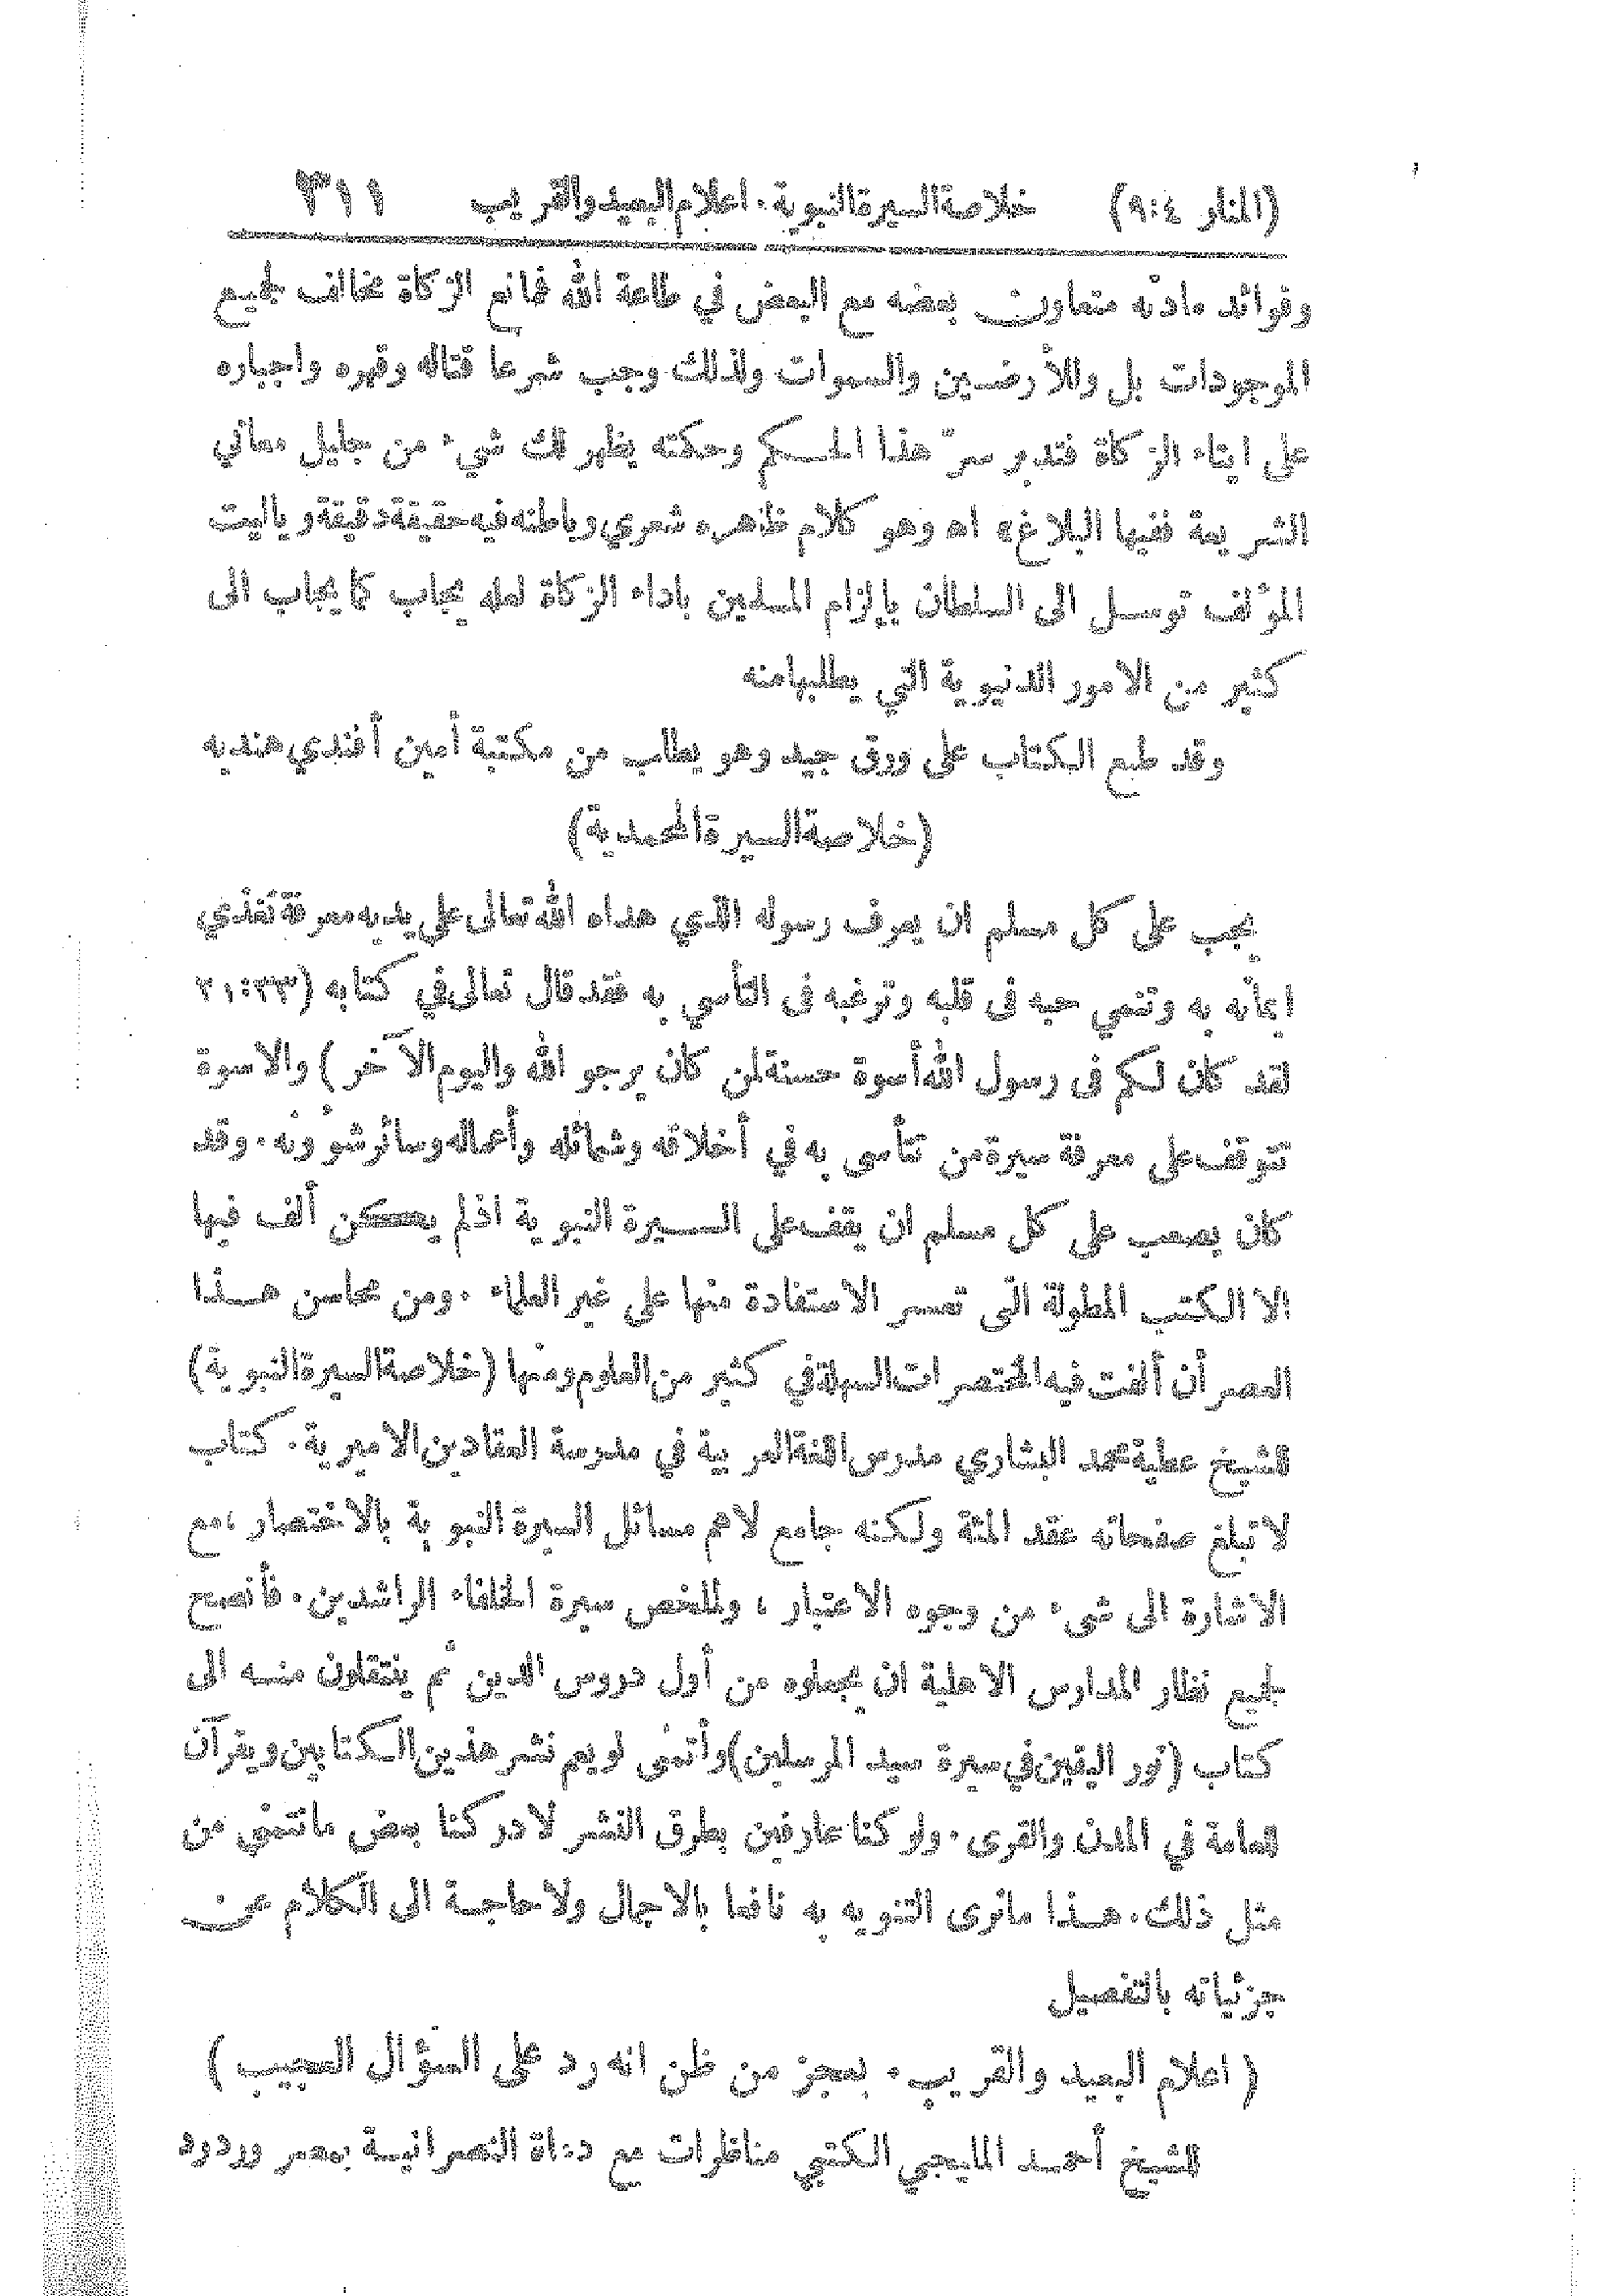 (المنار ٩:٤) خلاصة السيرة النبوية . اعلام البعيد والقريب ٣١١
وفوائد مادته متعاون بعضه مع البعض في طاعة الله فمانع الزكاة مخالف لجميع
الموجودات بل وللأرضين والسموات ولذلك وجب شرعا قتاله وقهره واجباره
على ايتاء الزكاة فتدبر سرّ هذا الحكم وحكمته يظهر لك شيء من جليل معاني
الشريعة ففيها البلاغ» اه وهو كلام ظاهره شعري وباطنه فيه حقيقة دقيقة وياليت
المؤلف توسل الى السلطان بإلزام المسلمين باداء الزكاة لعله يجاب كما يجاب الى
كثير من الامور الدنيوية التي يطلبها منه
وقد طبع الكتاب على ورق جيد وهو يطلب من مكتبة أمين أفندي هنديه
(خلاصة السيرة المحمدية)
يجب على كل مسلم ان يعرف رسوله الذي هداه الله تعالى على يديه معرفة تغذي
ايمانه به وتنمي حبه فى قلبه وترغبه فى التأسي به فقد قال تعالى في كتابه (٢١:٣٣
لقد كان لكم فى رسول الله أسوة حسنة لمن كان يرجو الله واليوم الآخر) والاسوة
تتوقف على معرفة سيرة من تتأسى به في أخلاقه وشمائله وأعماله وسائر شؤونه . وقد
كان يصعب على كل مسلم ان يقف على السيرة النبوية اذ لم يكن ألف فيها
الا الكتب المطولة التى تعسر الاستفادة منها على غير العلماء . ومن محاسن هذا
العصر أن ألفت فيه المختصرات السهلة في كثير من العلوم ومنها (خلاصة السيرة النبوية)
للشيخ عطية محمد البشاري مدرس اللغة العربية في مدرسة العقادين الاميرية . كتاب
لا تبلغ صفحاته عقد المئة ولكنه جامع لاهم مسائل السيرة النبوية بالاختصار ، مع
الاشارة الى شيء من وجوه الاعتبار ، وملخص سيرة الخلفاء الراشدين . فأنصح
لجميع نظار المدارس الاهلية ان يجعلوه من أول دروس الدين ثم ينتقلون منه الى
كتاب (نور اليقين في سيرة سيد المرسلين) وأتمنى لو يعم نشر هذين الكتابين ويقرآن
للعامة في المدن والقرى . ولو كنا عارفين بطرق النشر لادركنا بعض ما نتمنى من
مثل ذلك . هذا مانرى التنويه به نافعا بالاجمال ولا حاجة الى الكلام عن
جزئياته بالتفصيل
(اعلام البعيد والقريب . بعجز من ظن انه رد على السؤال العجيب)
للشيخ أحمد المليجي الكتبي مناظرات مع دعاة النصرانية بمصر وردود